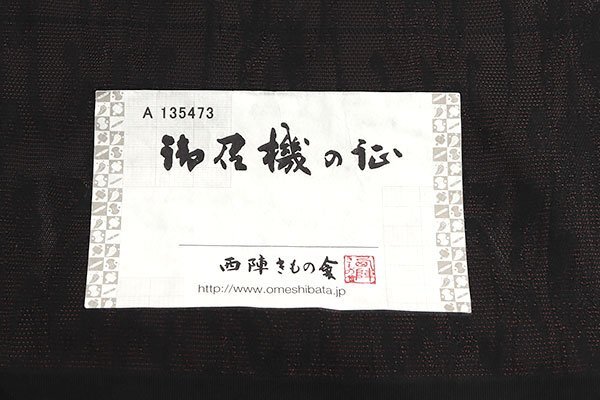 A 135473
御召機の証
西陣きもの会
http://www.omeshibata.jp